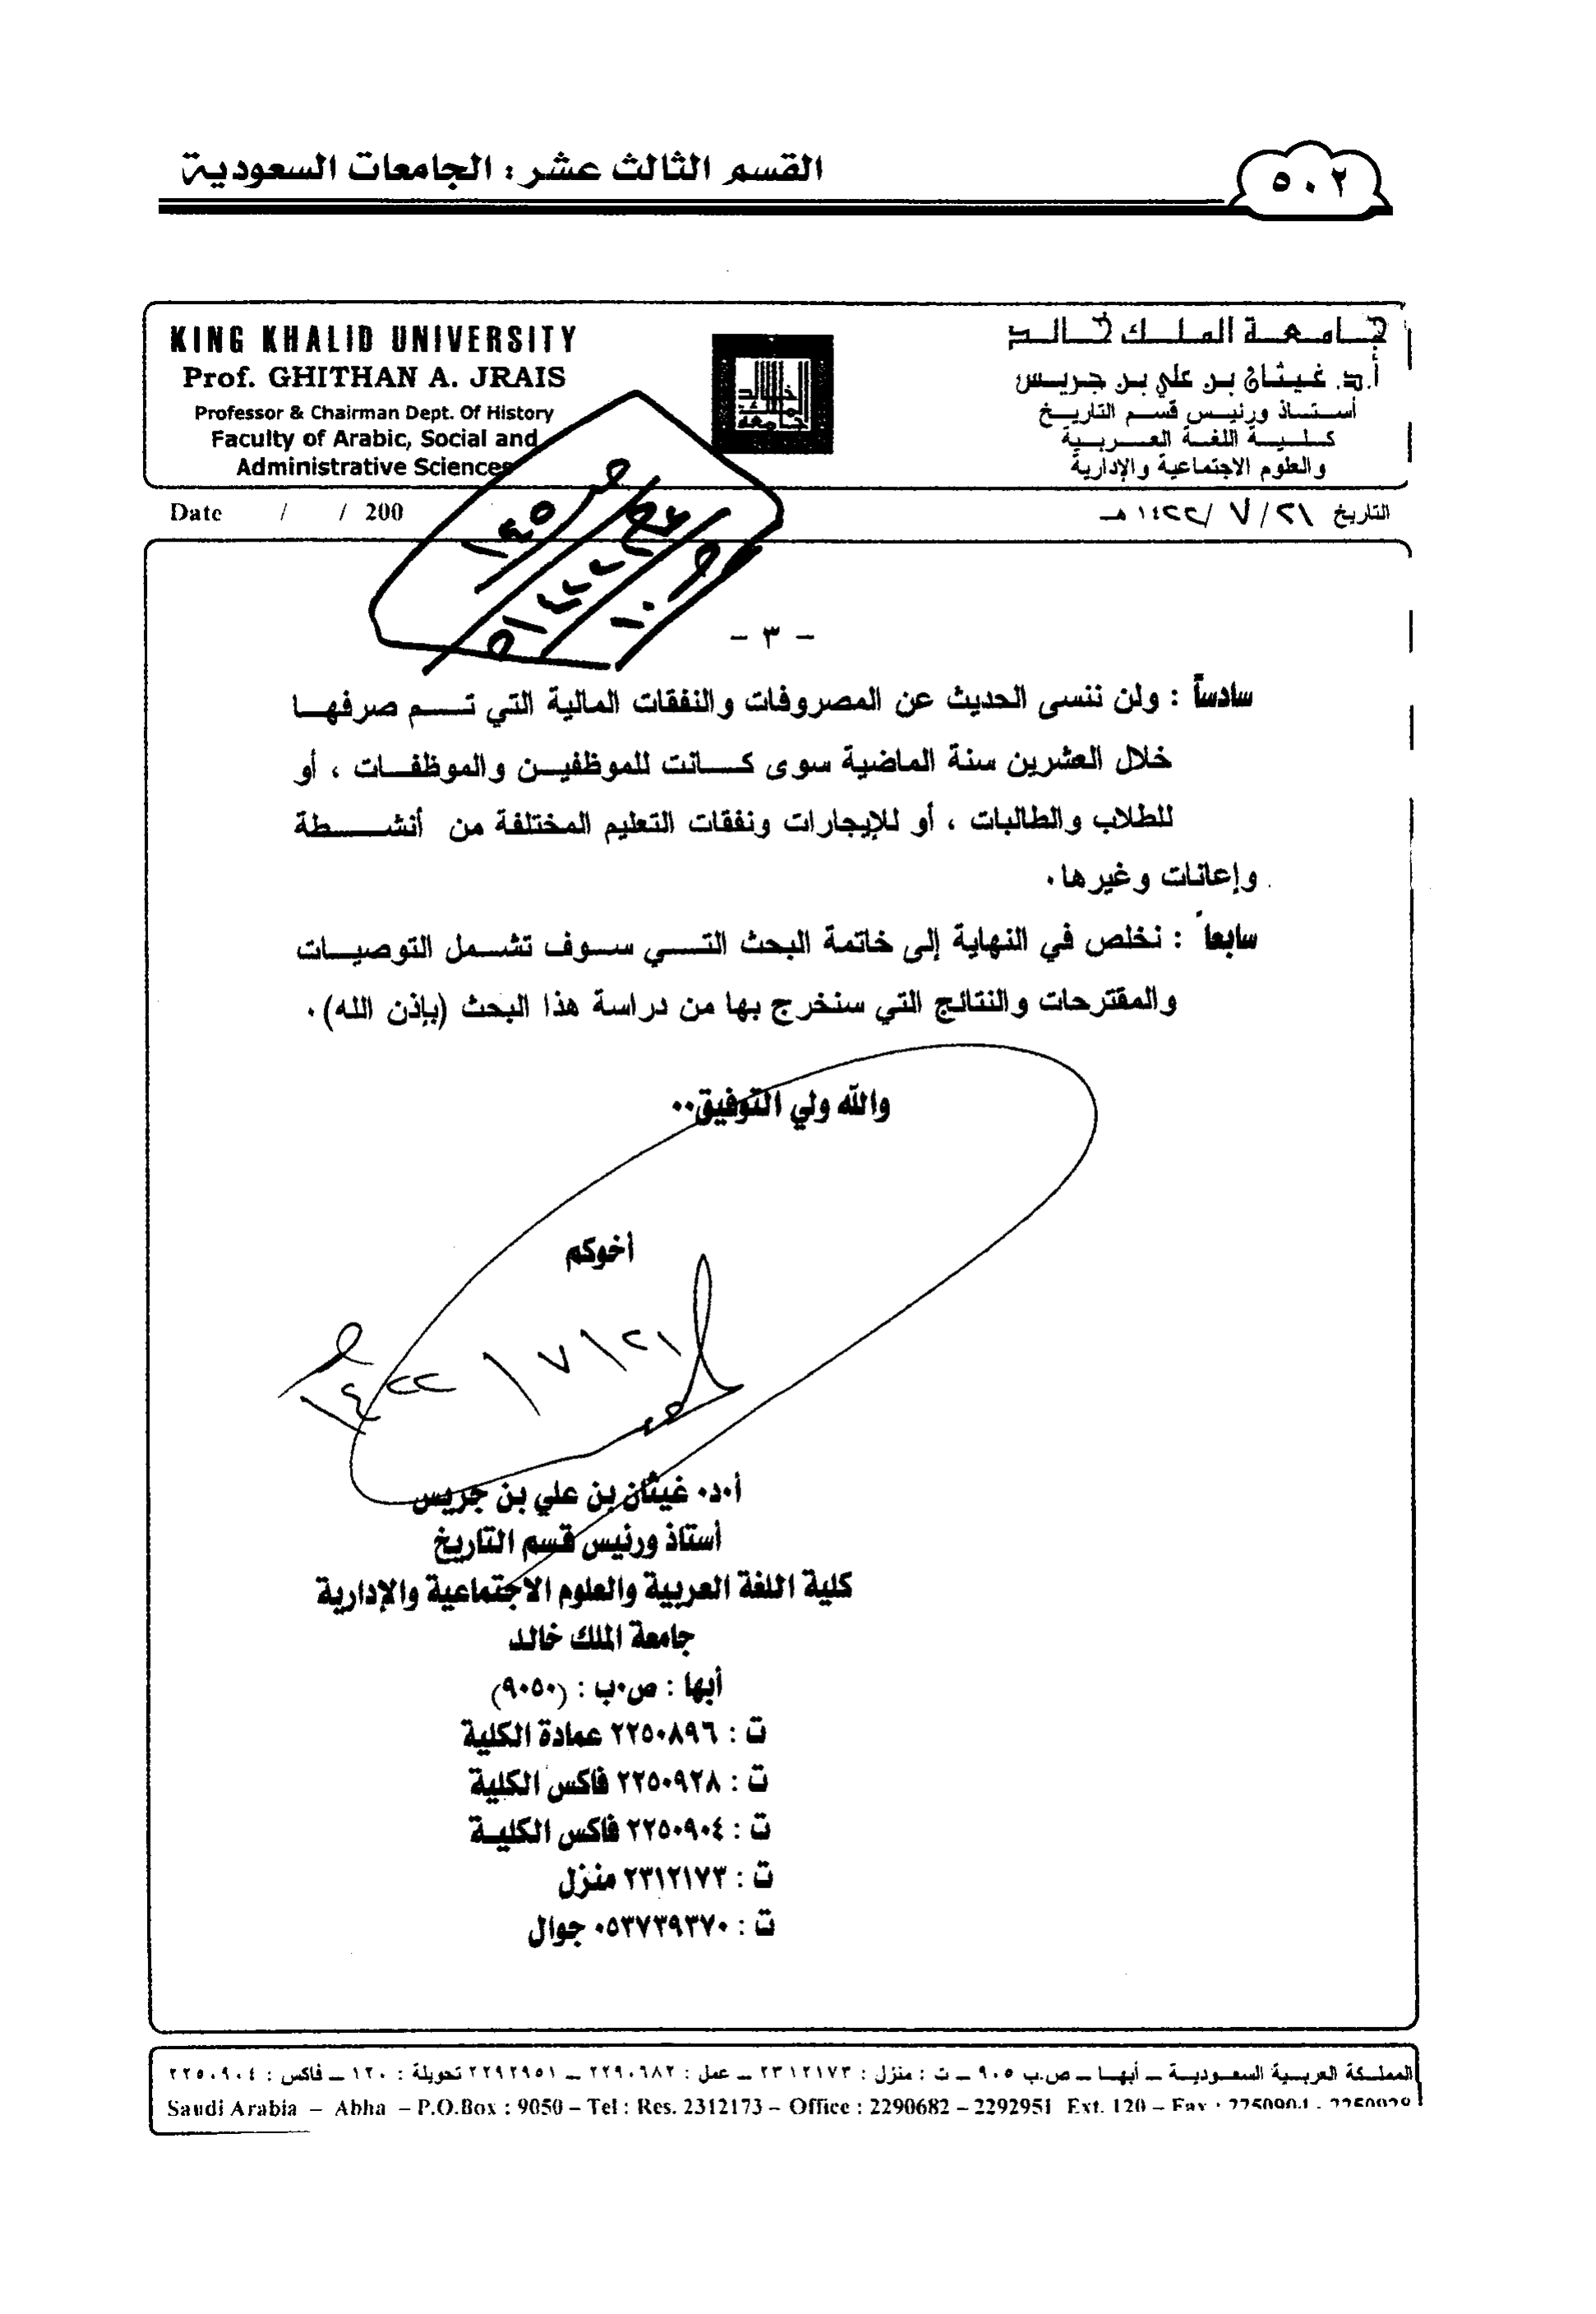 القسم الثالث عشر : الجامعات السعودية
٥٠٢
KING KHALID UNIVERSITY
Prof. GHITHAN A. JRAIS
Professor & Chairman Dept. Of History
Faculty of Arabic, Social and
Administrative Sciences
جامعة الملك خالد
أ.د. غيثان بن علي بن جريس
أستاذ ورئيس قسم التاريخ
كلية اللغة العربية
والعلوم الاجتماعية والإدارية
جامعة الملك خالد
Date / / 200
التاريخ ٢١/ ٧ /١٤٢٢هـ
- ٣ -
سادساً : ولن ننسى الحديث عن المصروفات والنفقات المالية التي تم صرفها
خلال العشرين سنة الماضية سوى كانت للموظفين والموظفات ، أو
للطلاب والطالبات ، أو للإيجارات ونفقات التعليم المختلفة من أنشطة
وإعانات وغيرها.
سابعاً : نخلص في النهاية إلى خاتمة البحث التي سوف تشمل التوصيات
والمقترحات والنتائج التي سنخرج بها من دراسة هذا البحث (بإذن الله).
والله ولي التوفيق..
أخوكم
٢١/ ٧ / ١٤٢٢هـ
أ.د. غيثان بن علي بن جريس
أستاذ ورئيس قسم التاريخ
كلية اللغة العربية والعلوم الاجتماعية والإدارية
جامعة الملك خالد
أبها : ص.ب : (٩٠٥٠)
ت : ٢٢٥٠٨٩٦ عمادة الكلية
ت : ٢٢٥٠٩٢٨ فاكس الكلية
ت : ٢٢٥٠٩٠٤ فاكس الكلية
ت : ٢٣١٢١٧٣ منزل
ت : ٠٥٣٧٣٩٣٧٠ جوال
المملكة العربية السعودية – أبها – ص.ب ٩٠٥ – ت : منزل : ٢٣١٢١٧٣ – عمل : ٢٢٩٠٦٨٢ – ٢٢٩٢٩٥١ تحويلة : ١٢٠ – فاكس : ٢٢٥٠٩٠٤
Saudi Arabia – Abha – P.O.Box : 9050 – Tel : Res. 2312173 – Office : 2290682 – 2292951 Ext. 120 – Fax : 2250904 - 2250928